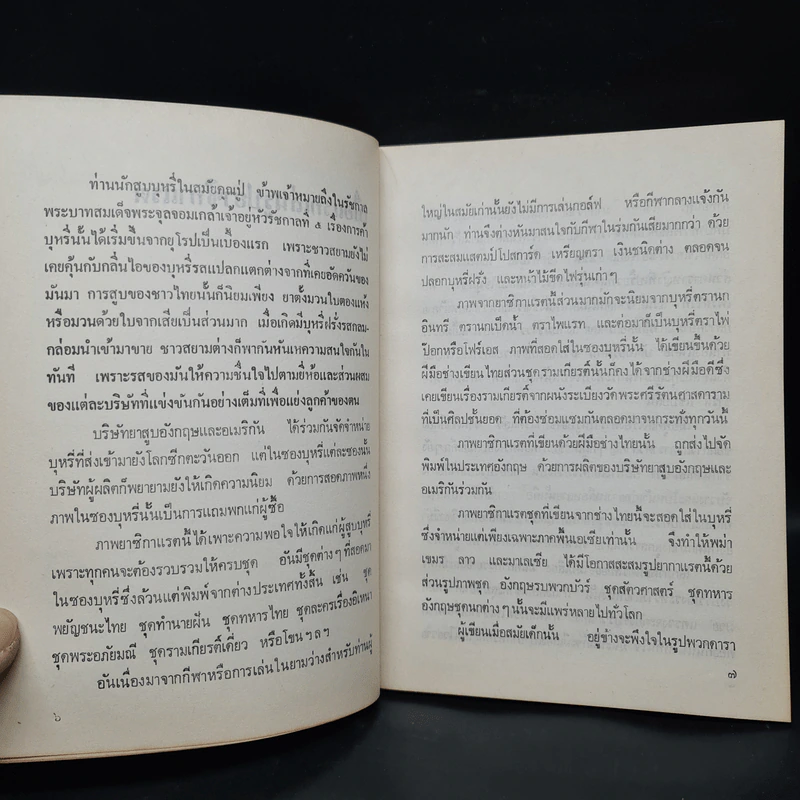 ท่านนักสูบบุหรี่ในสมัยคุณปู่ ข้าพเจ้าหมายถึงในรัชกาล
พระบาทสมเด็จพระจุลจอมเกล้าเจ้าอยู่หัวรัชกาลที่ ๕ เรื่องการค้า
บุหรี่นั้นได้เริ่มขึ้นจากยุโรปเป็นเบื้องแรก เพราะชาวสยามยังไม่
เคยคุ้นกับกลิ่นไอของบุหรี่รสแปลกแตกต่างจากที่เคยอัดควันของ
มันมา การสูบของชาวไทยนั้นก็นิยมเพียง ยาตั้งมวนใบตองแห้ง
หรือมวนด้วยใบจากเสียเป็นส่วนมาก เมื่อเกิดมีบุหรี่ฝรั่งรสกลม-
กล่อมนำเข้ามาขาย ชาวสยามต่างก็พากันหันเหความสนใจกันใน
ทันที เพราะรสของมันให้ความชื่นใจไปตามยี่ห้อและส่วนผสม
ของแต่ละบริษัทที่แข่งขันกันอย่างเต็มที่เพื่อแย่งลูกค้าของตน
บริษัทยาสูบอังกฤษและอเมริกัน ได้ร่วมกันจัดจำหน่าย
บุหรี่ที่ส่งเข้ามายังโลกซีกตะวันออก แต่ในซองบุหรี่แต่ละซองนั้น
บริษัทผู้ผลิตก็พยายามยังให้เกิดความนิยม ด้วยการสอดภาพหนึ่ง
ภาพในซองบุหรี่นั้นเป็นการแถมพกแก่ผู้ซื้อ
ภาพยาซิกาแรตนี้ได้เพาะความพอใจให้เกิดแก่ผู้สูบบุหรี่
เพราะทุกคนจะต้องรวบรวมให้ครบชุด อันมีชุดต่างๆ ที่สอดมา
ในซองบุหรี่ซึ่งล้วนแต่พิมพ์จากต่างประเทศทั้งสิ้น เช่น ชุด
พยัญชนะไทย ชุดทำนายฝัน ชุดทหารไทย ชุดละครเรื่องอิเหนา
ชุดพระอภัยมณี ชุดรามเกียรติ์เดี่ยว หรือโขน ฯลฯ
อันเนื่องมาจากกีฬาหรือการเล่นในยามว่างสำหรับท่านผู้
๖
ใหญ่ในสมัยเก่านั้นยังไม่มีการเล่นกอล์ฟ หรือกีฬากลางแจ้งกัน
มากนัก ท่านจึงต่างหันมาสนใจกับกีฬาในร่มกันเสียมากกว่า ด้วย
การสะสมแสตมป์โปสการ์ด เหรียญตรา เงินชนิดต่าง ตลอดจน
ปลอกบุหรี่ฝรั่ง และหน้าไม้ขีดไฟรุ่นเก่าๆ
ภาพจากยาซิกาแรตนี้ส่วนมากมักจะนิยมจากบุหรี่ตรานก
อินทรี ตรานกเป็ดน้ำ ตราไพแรท และต่อมาก็เป็นบุหรี่ตราไพ่
ป๊อกหรือโฟร์เอส ภาพที่สอดใส่ในซองบุหรี่นั้น ได้เขียนขึ้นด้วย
ฝีมือช่างเขียนไทยส่วนชุดรามเกียรติ์นั้นก็คงได้จากช่างฝีมือดีซึ่ง
เคยเขียนเรื่องรามเกียรติ์จากผนังระเบียงวัดพระศรีรัตนศาสดาราม
ที่เป็นศิลปชั้นยอด ที่ต้องซ่อมแซมกันตลอดมาจนกระทั่งทุกวันนี้
ภาพยาซิกาแรตที่เขียนด้วยฝีมือช่างไทยนั้น ถูกส่งไปจัด
พิมพ์ในประเทศอังกฤษ ด้วยการผลิตของบริษัทยาสูบอังกฤษและ
อเมริกันร่วมกัน
ภาพยาซิกาแรตชุดที่เขียนจากช่างไทยนี้จะสอดใส่ในบุหรี่
ซึ่งจำหน่ายแต่เพียงเฉพาะภาคพื้นเอเซียเท่านั้น จึงทำให้พม่า
เขมร ลาว และมาเลเซีย ได้มีโอกาสสะสมรูปยากาแรตนี้ด้วย
ส่วนรูปภาพชุด อังกฤษรบพวกบัวร์ ชุดสัตวศาสตร์ ชุดทหาร
อังกฤษชุดนกต่างๆ นั้นจะมีแพร่หลายไปทั่วโลก
ผู้เขียนเมื่อสมัยเด็กนั้น อยู่ข้างจะพึงใจในรูปพวกดารา
๗